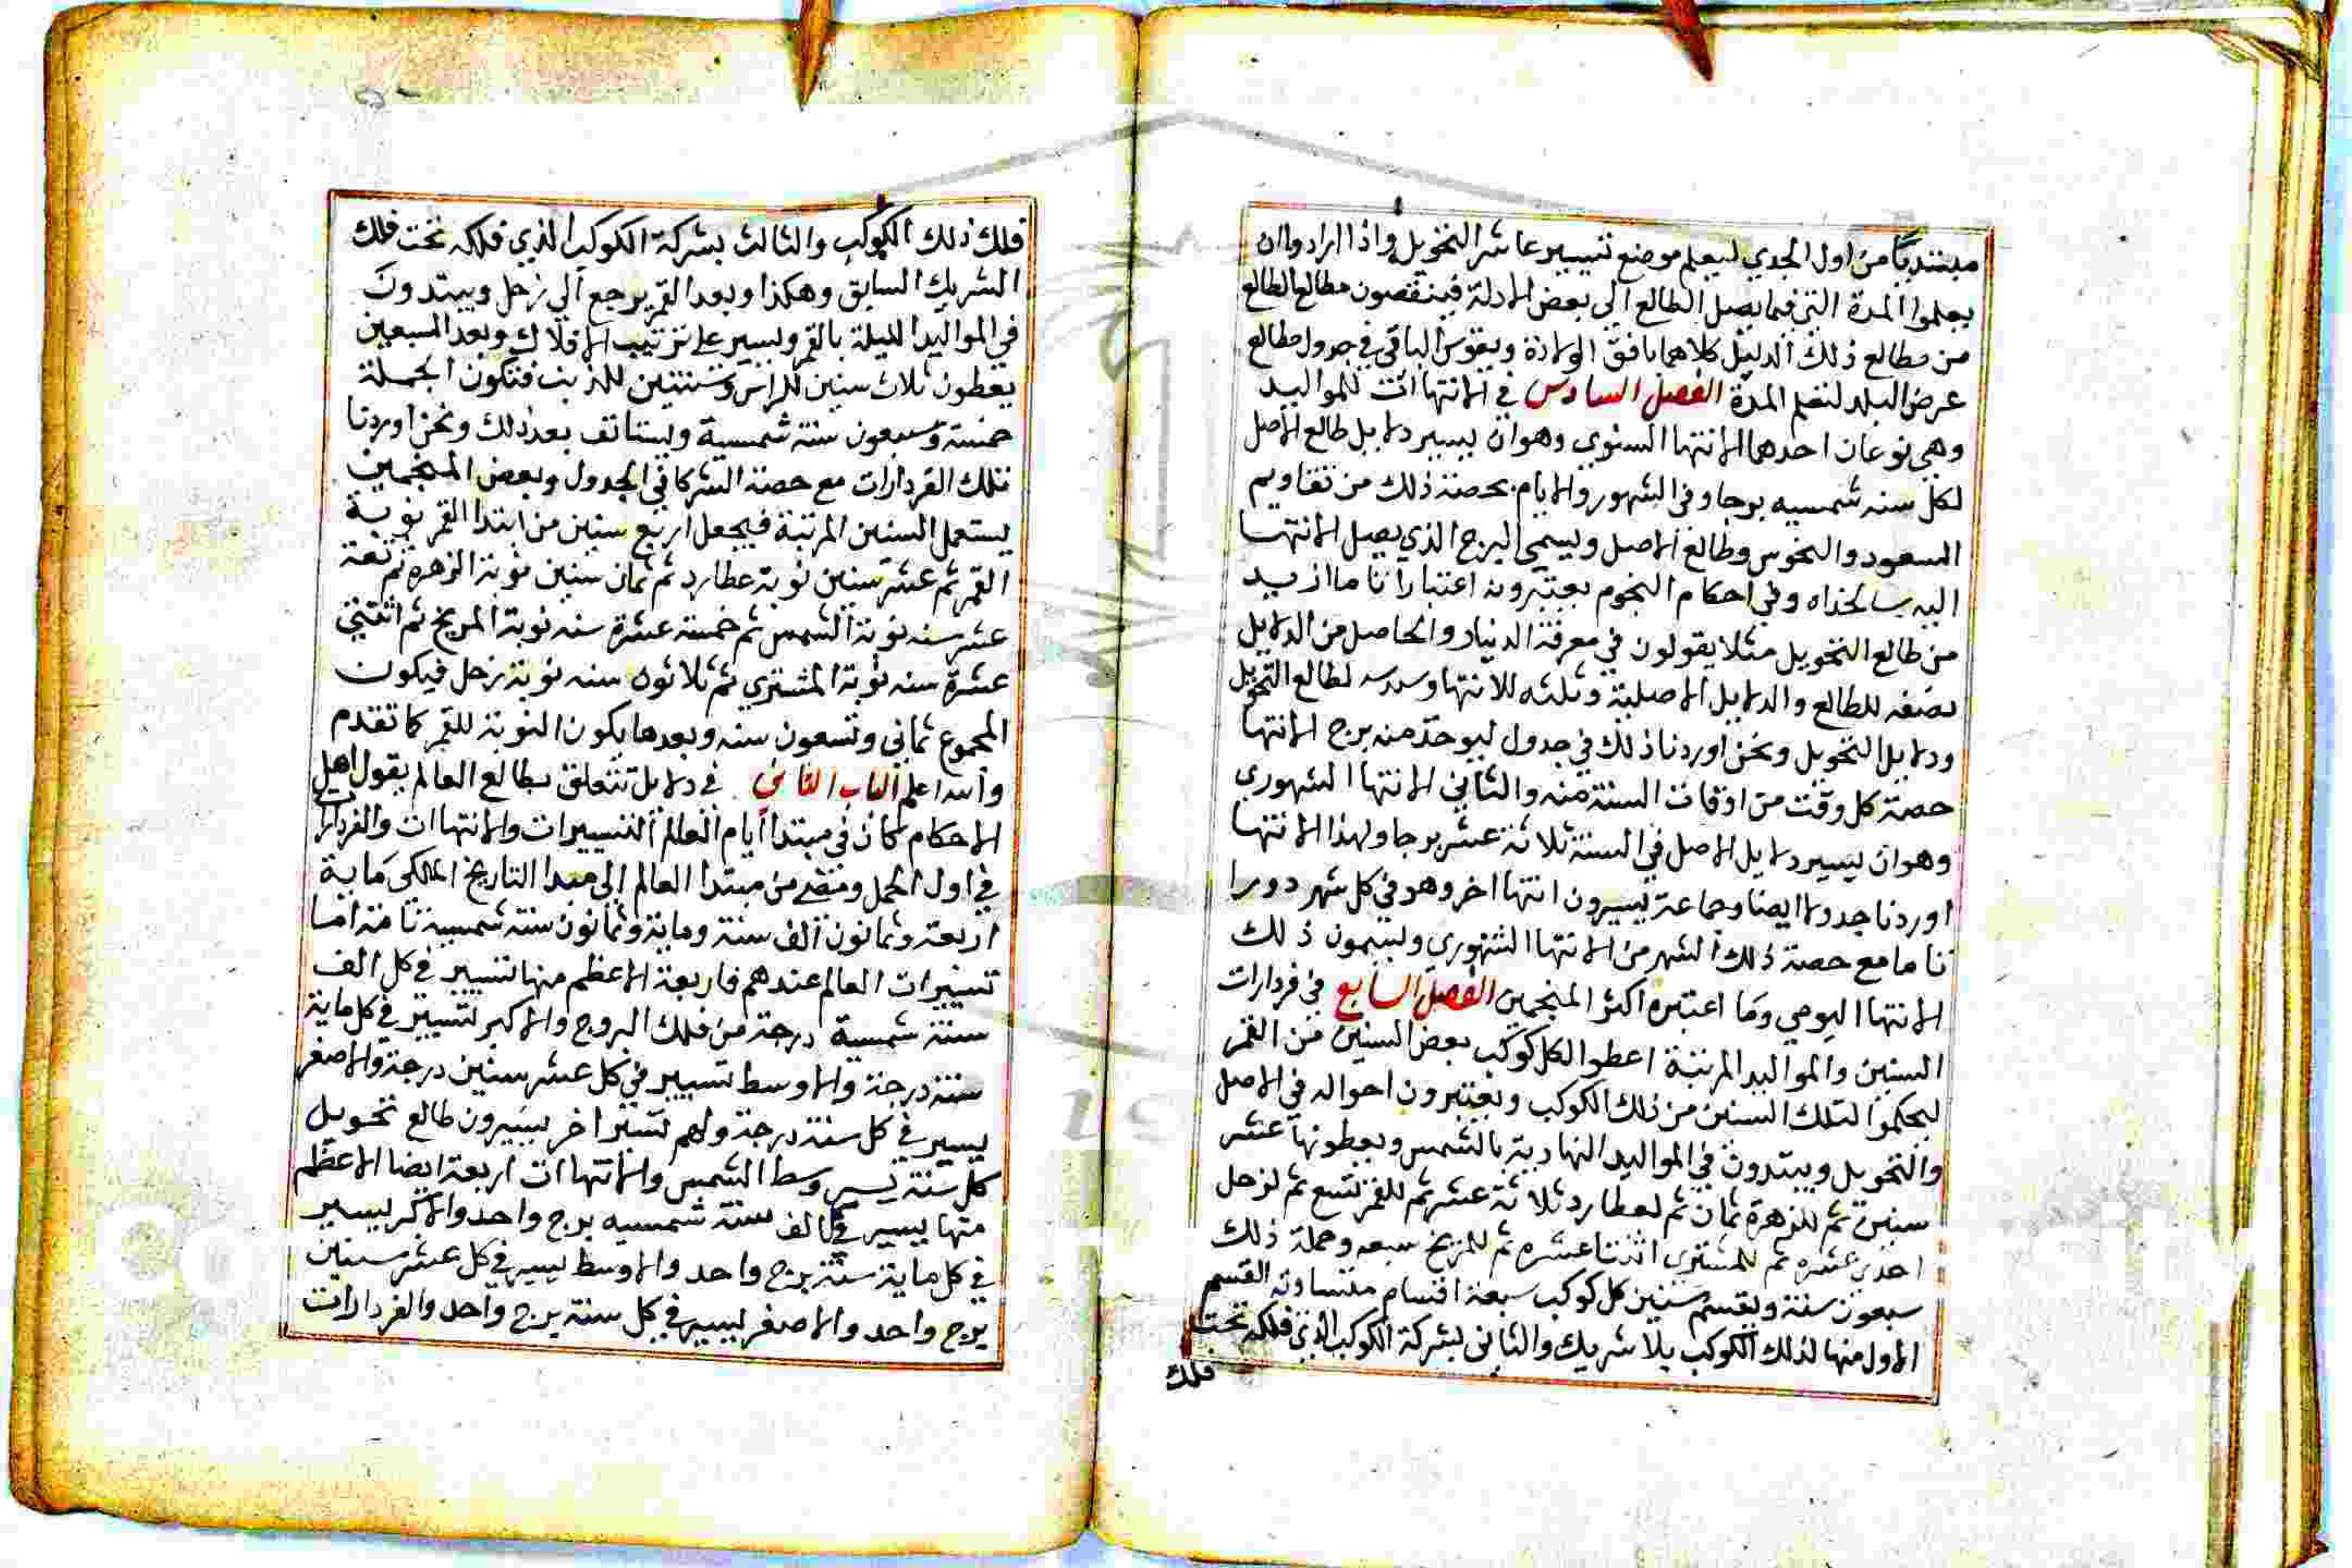 مبتديا من اول الجدي ليعلم موضع تسيير عاشر التحويل واذا ارادوا ان
يعلموا المدة التي فيها يصل الطالع الى بعض الادلة فينقصون مطالع الطالع
من مطالع ذلك الدليل كلاهما بافق الولادة ويقوس الباقي في جدول مطالع
عرض البلد لنعلم المدة الفصل السادس في الانتهاات للمواليد
وهي نوعان احدهما الانتها السنوي وهو ان يسير دلايل طالع الاصل
لكل سنه شمسيه برجا وفي الشهور والايام بحصة ذلك من تقاويم
السعود والنحوس وطالع الاصل ويسمى البرج الذي يصل الانتها
اليه سالخداه وفي احكام النجوم يعتبرونه اعتبارا تاما ازيد
من طالع التحويل مثلا يقولون في معرفة الدنيا والحاصل من الدلايل
نصفه للطالع والدلايل الاصلية وثلثه للانتها وسدسه لطالع التحويل
ودلايل التحويل ونحن اوردنا ذلك في جدول ليوخذ منه برج الانتها
حصة كل وقت من اوقات السنة منه والثاني الانتها الشهوري
وهو ان يسير دلايل الاصل في السنة ثلاثة عشر برجا ولهذا الانتها
اوردنا جدولا ايضا وجماعة يسيرون انتها اخر وهو في كل شهر دورا
تاما مع حصة ذلك الشهر من الانتها الشهوري ويسمون ذلك
الانتها اليومي وما اعتبره اكثر المنجمين الفصل السابع في فردارات
السنين والمواليد المرتبة اعطوا لكل كوكب بعض السنين من القمر
ليحكموا لتلك السنين من ذلك الكوكب ويعتبرون احواله في الاصل
والتحويل ويبتدون في المواليد النهارية بالشمس ويعطونها عشر
سنين ثم للزهرة ثمان ثم لعطارد ثلاثة عشر ثم للقمر تسع ثم لزحل
احدى عشره ثم للمشتري اثنتا عشره ثم للمريخ سبعه وجملة ذلك
سبعون سنة ويقسم سنين كل كوكب سبعة اقسام متساوية القسم
الاول منها لذلك الكوكب بلا شريك والثاني بشركة الكوكب الذي فلكه تحت
فلك
فلك ذلك الكوكب والثالث بشركة الكوكب الذي فلكه تحت فلك
الشريك السابق وهكذا وبعد القمر يرجع الى زحل ويبتدون
في المواليد الليلة بالقمر ويسير على ترتيب الافلاك وبعد السبعين
يعطون ثلاث سنين للراس وسنتين للذنب فتكون الجملة
خمسة وسبعون سنة شمسية ويستانف بعد ذلك ونحن اوردنا
تلك الفردارات مع حصة الشركا في الجدول وبعض المنجمين
يستعمل السنين المرتبة فيجعل اربع سنين من ابتدا القمر نوبة
القمر ثم عشر سنين نوبة عطارد ثم ثمان سنين نوبة الزهره ثم تسعة
عشر سنه نوبة الشمس ثم خمسة عشرة سنه نوبة المريخ ثم اثنتي
عشرة سنه نوبة المشتري ثم ثلاثون سنه نوبة زحل فيكون
المجموع ثماني وتسعون سنه وبعدها يكون النوبة للقمر كما تقدم
والله اعلم الباب الثاني في دلايل تتعلق بطالع العالم يقول اهل
الاحكام كان في مبتدا ايام العالم التسييرات والانتهاات والفردارات
في اول الحمل ومضى من مبتدا العالم الى مبدا التاريخ الملكي ماية
اربعة وثمانون الف سنة وماية وثمانون سنة شمسية تامة اما
تسييرات العالم عندهم فاربعة الاعظم منها تسيير في كل الف
سنة شمسية درجة من فلك البروج والاكبر تسيير في كل ماية
سنة درجة والاوسط تسيير في كل عشر سنين درجة والاصغر
يسير في كل سنة درجة ولهم تسير اخر يسيرون طالع تحويل
كل سنة بسير وسط الشمس والانتهاات اربعة ايضا الاعظم
منها يسير في الف سنة شمسيه برج واحد والاكبر يسير
في كل ماية سنة برج واحد والاوسط يسير في كل عشر سنين
برج واحد والاصغر يسير في كل سنة برج واحد والفردارات